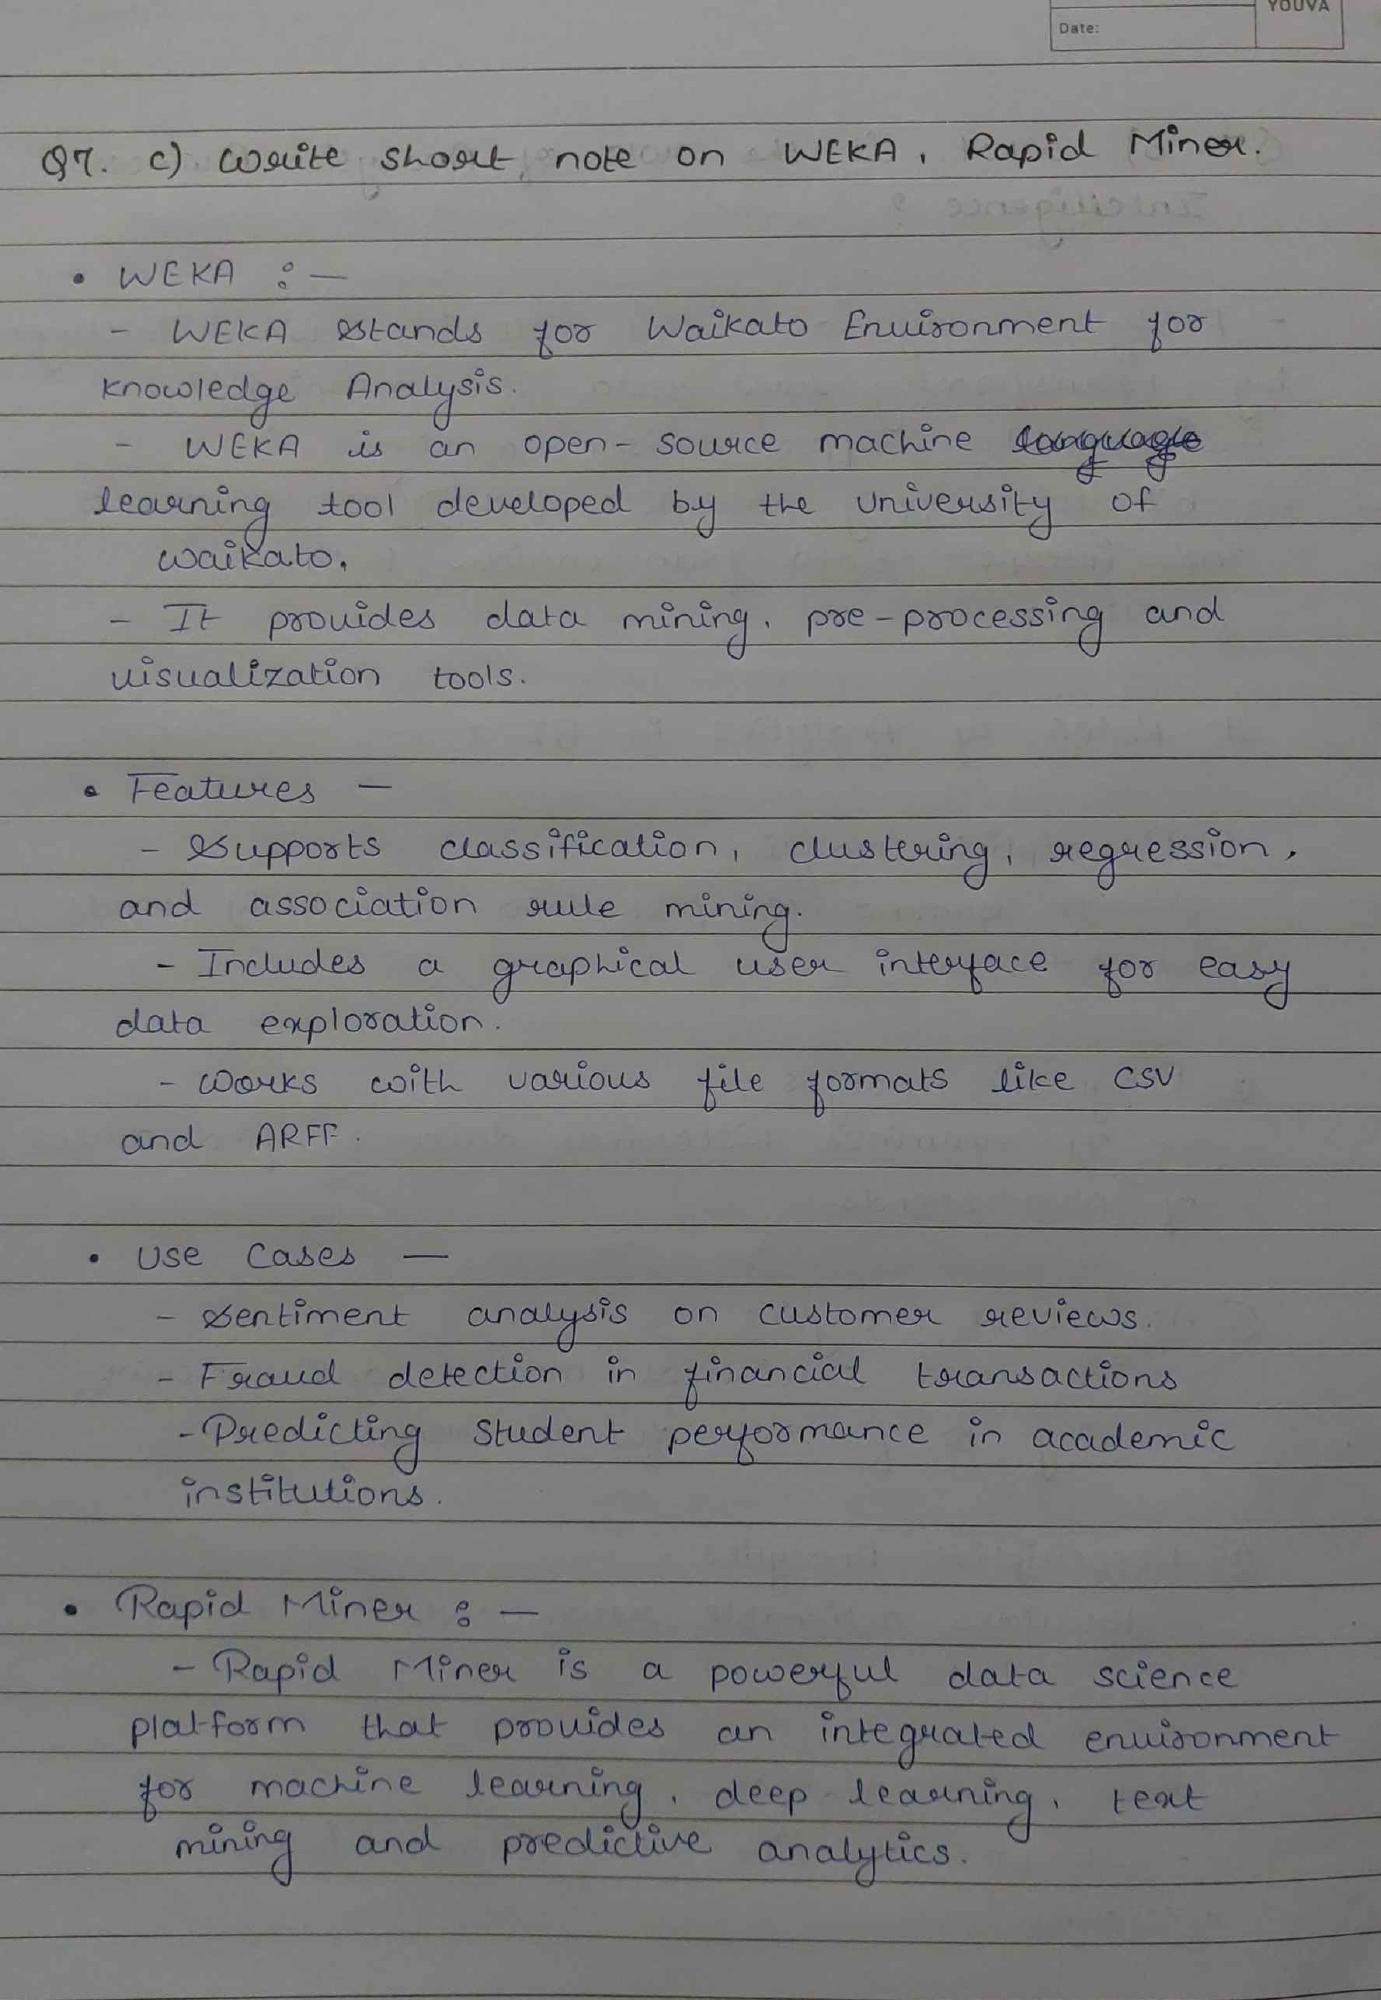 YOUVA
Date:
Q7. c) Write short note on WEKA, Rapid Miner.
• WEKA :-
- WEKA stands for Waikato Environment for
Knowledge Analysis.
- WEKA is an open-source machine language
learning tool developed by the University of
Waikato.
- It provides data mining, pre-processing and
visualization tools.
• Features -
- Supports classification, clustering, regression,
and association rule mining.
- Includes a graphical user interface for easy
data exploration.
- Works with various file formats like CSV
and ARFF.
• Use Cases -
- Sentiment analysis on customer reviews.
- Fraud detection in financial transactions
- Predicting student performance in academic
institutions.
• Rapid Miner :-
- Rapid Miner is a powerful data science
platform that provides an integrated environment
for machine learning, deep learning, text
mining and predictive analytics.